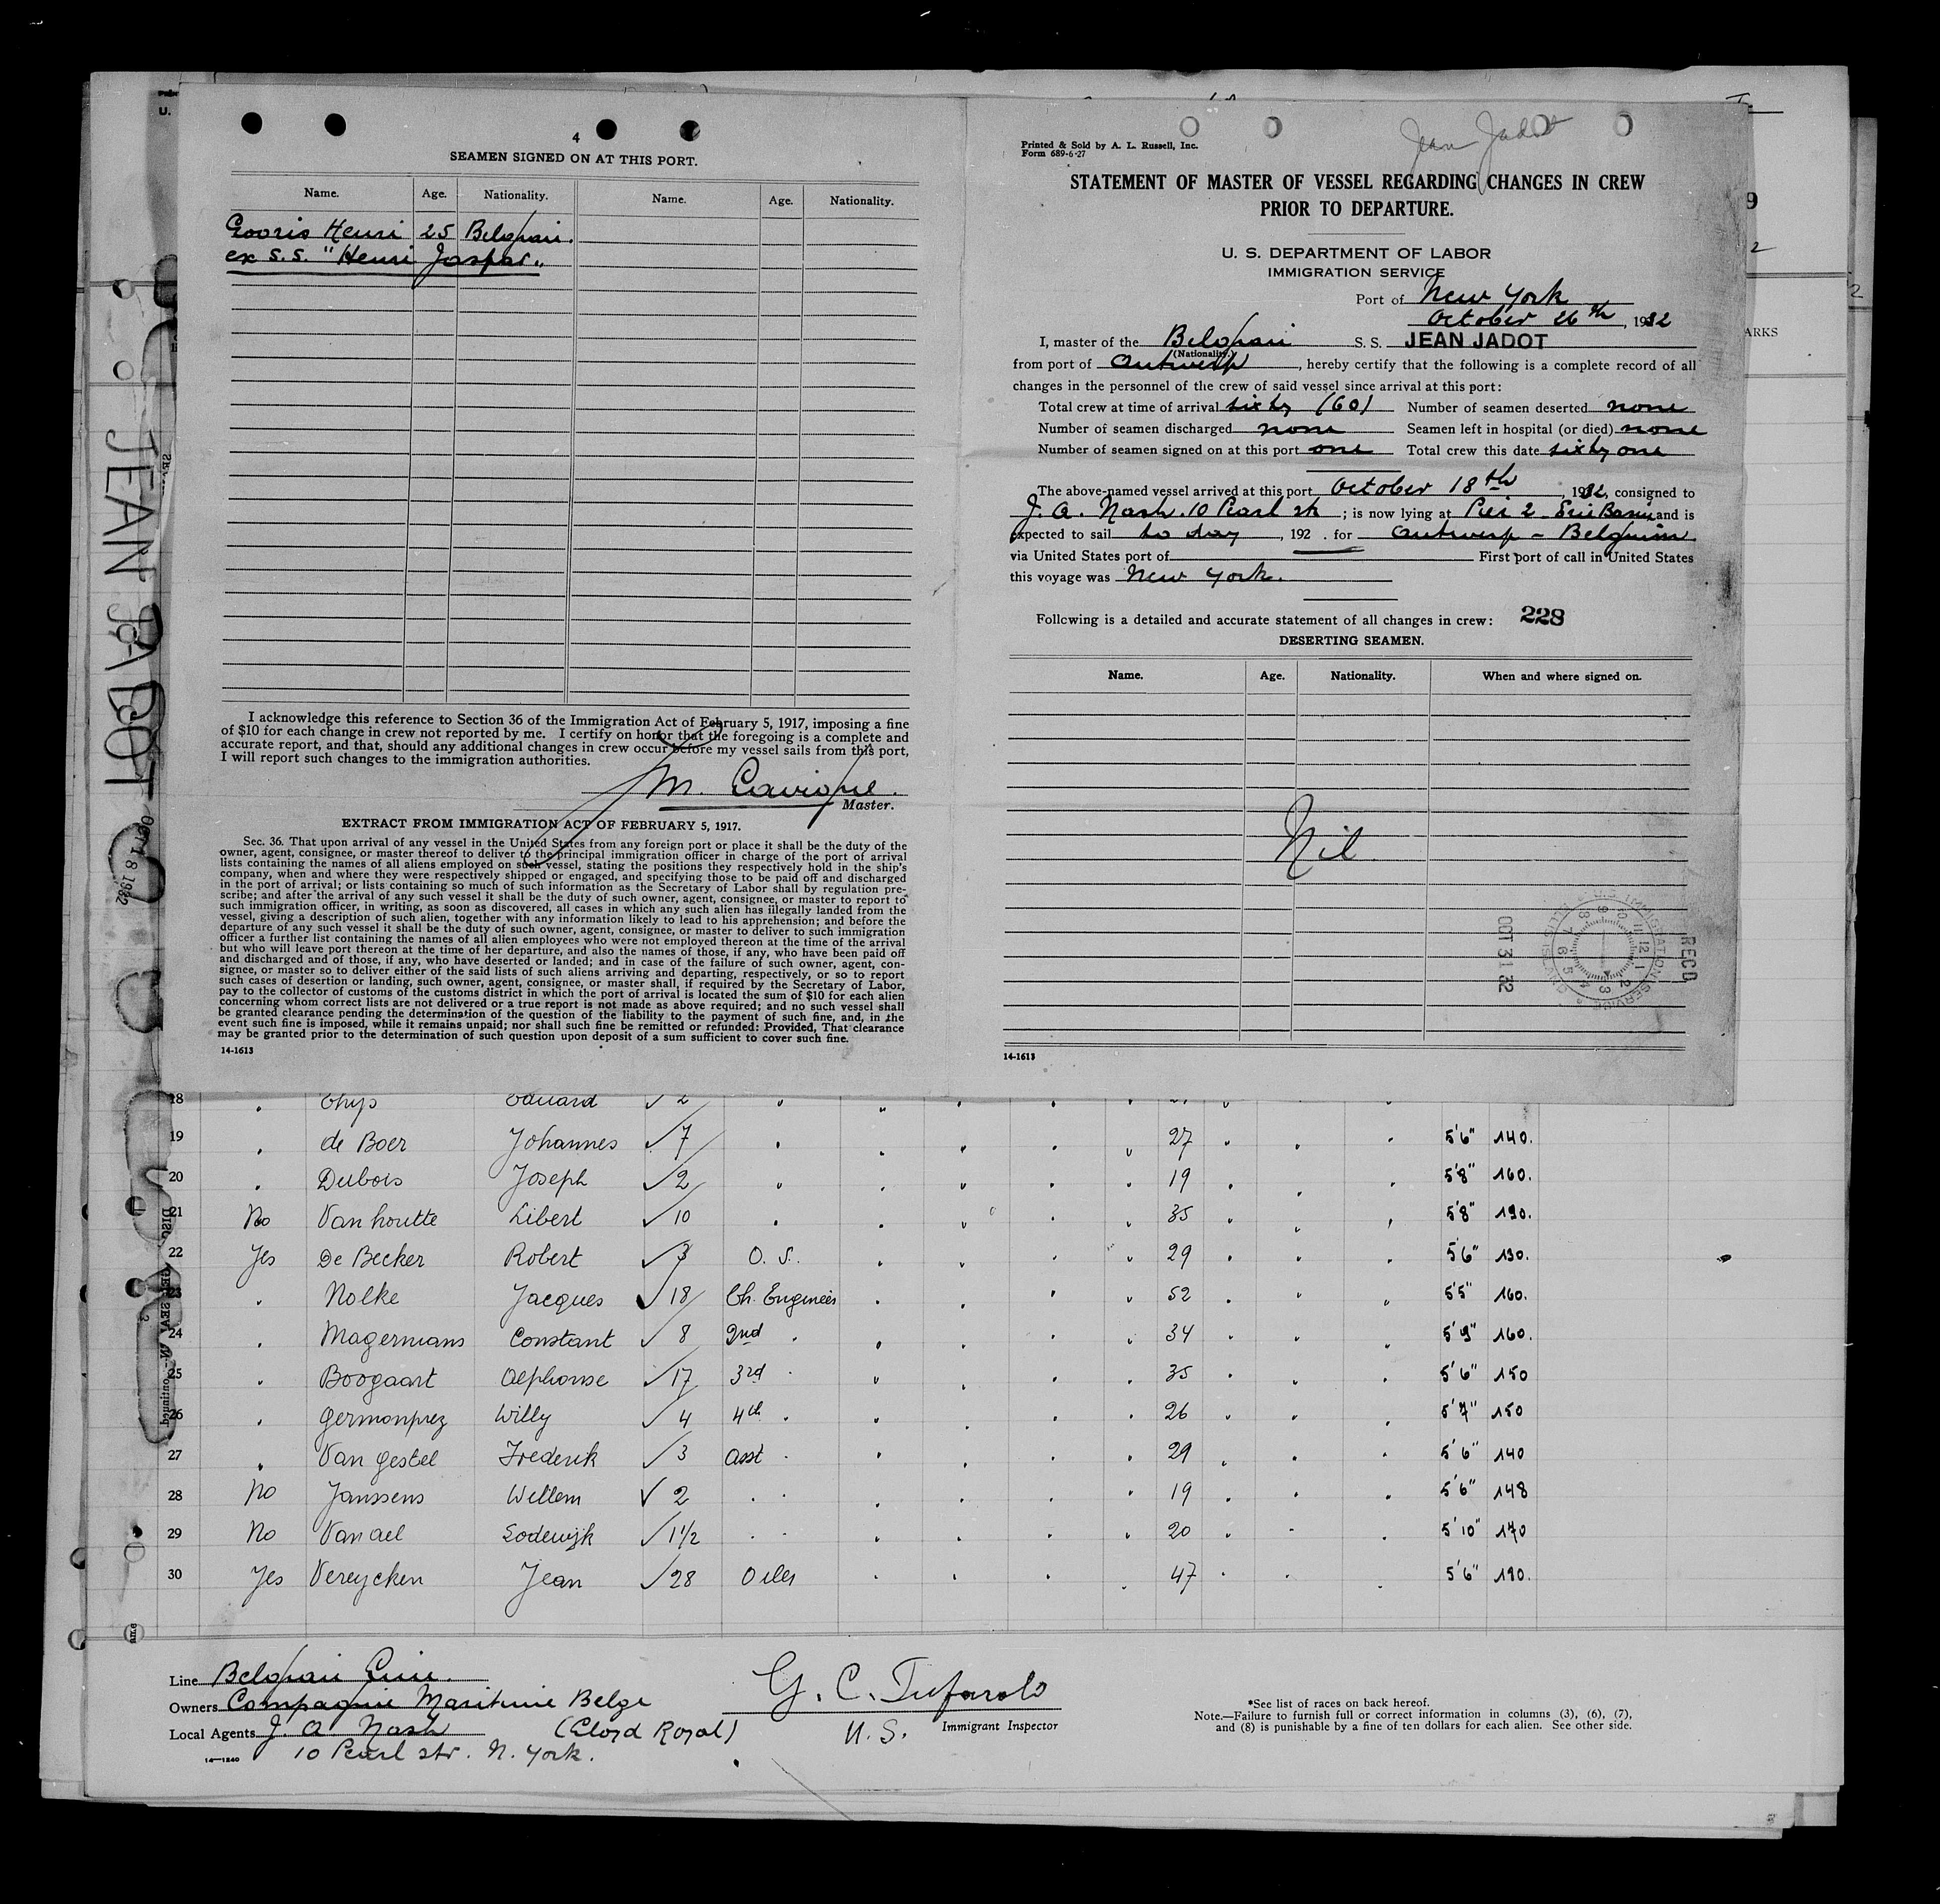 4
SEAMEN SIGNED ON AT THIS PORT.
Name. Age. Nationality. Name. Age. Nationality.
Gooris Henri 25 Belgian.
ex S.S. "Henri Jaspar"
I acknowledge this reference to Section 36 of the Immigration Act of February 5, 1917, imposing a fine
of $10 for each change in crew not reported by me. I certify on honor that the foregoing is a complete and
accurate report, and that, should any additional changes in crew occur before my vessel sails from this port,
I will report such changes to the immigration authorities.
M.
Master.
EXTRACT FROM IMMIGRATION ACT OF FEBRUARY 5, 1917.
Sec. 36. That upon arrival of any vessel in the United States from any foreign port or place it shall be the duty of the
owner, agent, consignee, or master thereof to deliver to the principal immigration officer in charge of the port of arrival
lists containing the names of all aliens employed on such vessel, stating the positions they respectively hold in the ship's
company, when and where they were respectively shipped or engaged, and specifying those to be paid off and discharged
in the port of arrival; or lists containing so much of such information as the Secretary of Labor shall by regulation pre-
scribe; and after the arrival of any such vessel it shall be the duty of such owner, agent, consignee, or master to report to
such immigration officer, in writing, as soon as discovered, all cases in which any such alien has illegally landed from the
vessel, giving a description of such alien, together with any information likely to lead to his apprehension; and before the
departure of any such vessel it shall be the duty of such owner, agent, consignee, or master to deliver to such immigration
officer a further list containing the names of all alien employees who were not employed thereon at the time of the arrival
but who will leave port thereon at the time of her departure, and also the names of those, if any, who have been paid off
and discharged and of those, if any, who have deserted or landed; and in case of the failure of such owner, agent, con-
signee, or master so to deliver either of the said lists of such aliens arriving and departing, respectively, or so to report
such cases of desertion or landing, such owner, agent, consignee, or master shall, if required by the Secretary of Labor,
pay to the collector of customs of the customs district in which the port of arrival is located the sum of $10 for each alien
concerning whom correct lists are not delivered or a true report is not made as above required; and no such vessel shall
be granted clearance pending the determination of the question of the liability to the payment of such fine, and, in the
event such fine is imposed, while it remains unpaid; nor shall such fine be remitted or refunded: Provided, That clearance
may be granted prior to the determination of such question upon deposit of a sum sufficient to cover such fine.
14-1613
Jean Jadot
Printed & Sold by A. L. Russell, Inc.
Form 689-6-27
STATEMENT OF MASTER OF VESSEL REGARDING CHANGES IN CREW
PRIOR TO DEPARTURE.
U. S. DEPARTMENT OF LABOR
IMMIGRATION SERVICE
Port of New York
October 26th, 1932
I, master of the Belgian S. S. JEAN JADOT
(Nationality.)
from port of Antwerp, hereby certify that the following is a complete record of all
changes in the personnel of the crew of said vessel since arrival at this port:
Total crew at time of arrival sixty (60) Number of seamen deserted none
Number of seamen discharged none Seamen left in hospital (or died) none
Number of seamen signed on at this port one Total crew this date sixty one
The above-named vessel arrived at this port October 18th, 1932, consigned to
J. A. Nash. 10 Pearl str; is now lying at Pier 2 Erie Basin and is
expected to sail to day, 192 . for Antwerp - Belgium
via United States port of First port of call in United States
this voyage was New York.
Following is a detailed and accurate statement of all changes in crew: 228
DESERTING SEAMEN.
Name. Age. Nationality. When and where signed on.
Nil
REC'D
OCT 31 32
14-1613
JEAN JADOT
OCT 18 1932
ARKS
18 Thys Eduard ✓ 2
19 de Boer Johannes ✓ 7 27 5'6" 140.
20 Dubois Joseph ✓ 2 19 5'8" 160.
21 No Van houtte Libert ✓ 10 35 5'8" 190.
22 Yes De Becker Robert ✓ 3 O. S. 29 5'6" 130.
23 Nolke Jacques ✓ 18 Ch. Engineer 52 5'5" 160.
24 Magermans Constant ✓ 8 2nd 34 5'9" 160.
25 Boogaart Alphonse ✓ 17 3rd 35 5'6" 150
26 Germonprez Willy ✓ 4 4th 26 5'7" 150
27 Van gestel Frederik ✓ 3 asst 29 5'6" 140
28 No Janssens Willem ✓ 2 19 5'6" 148
29 No Van ael Lodewijk ✓ 1½ 20 5'10" 170
30 Yes Vereycken Jean ✓ 28 Oiler 47 5'6" 190.
Line Belgian Line.
Owners Compagnie Maritime Belge
Local Agents J. A. Nash (Lloyd Royal)
10 Pearl str. N. York.
14-1240
G. C. Tufarolo
U.S. Immigrant Inspector
*See list of races on back hereof.
Note.—Failure to furnish full or correct information in columns (3), (6), (7),
and (8) is punishable by a fine of ten dollars for each alien. See other side.